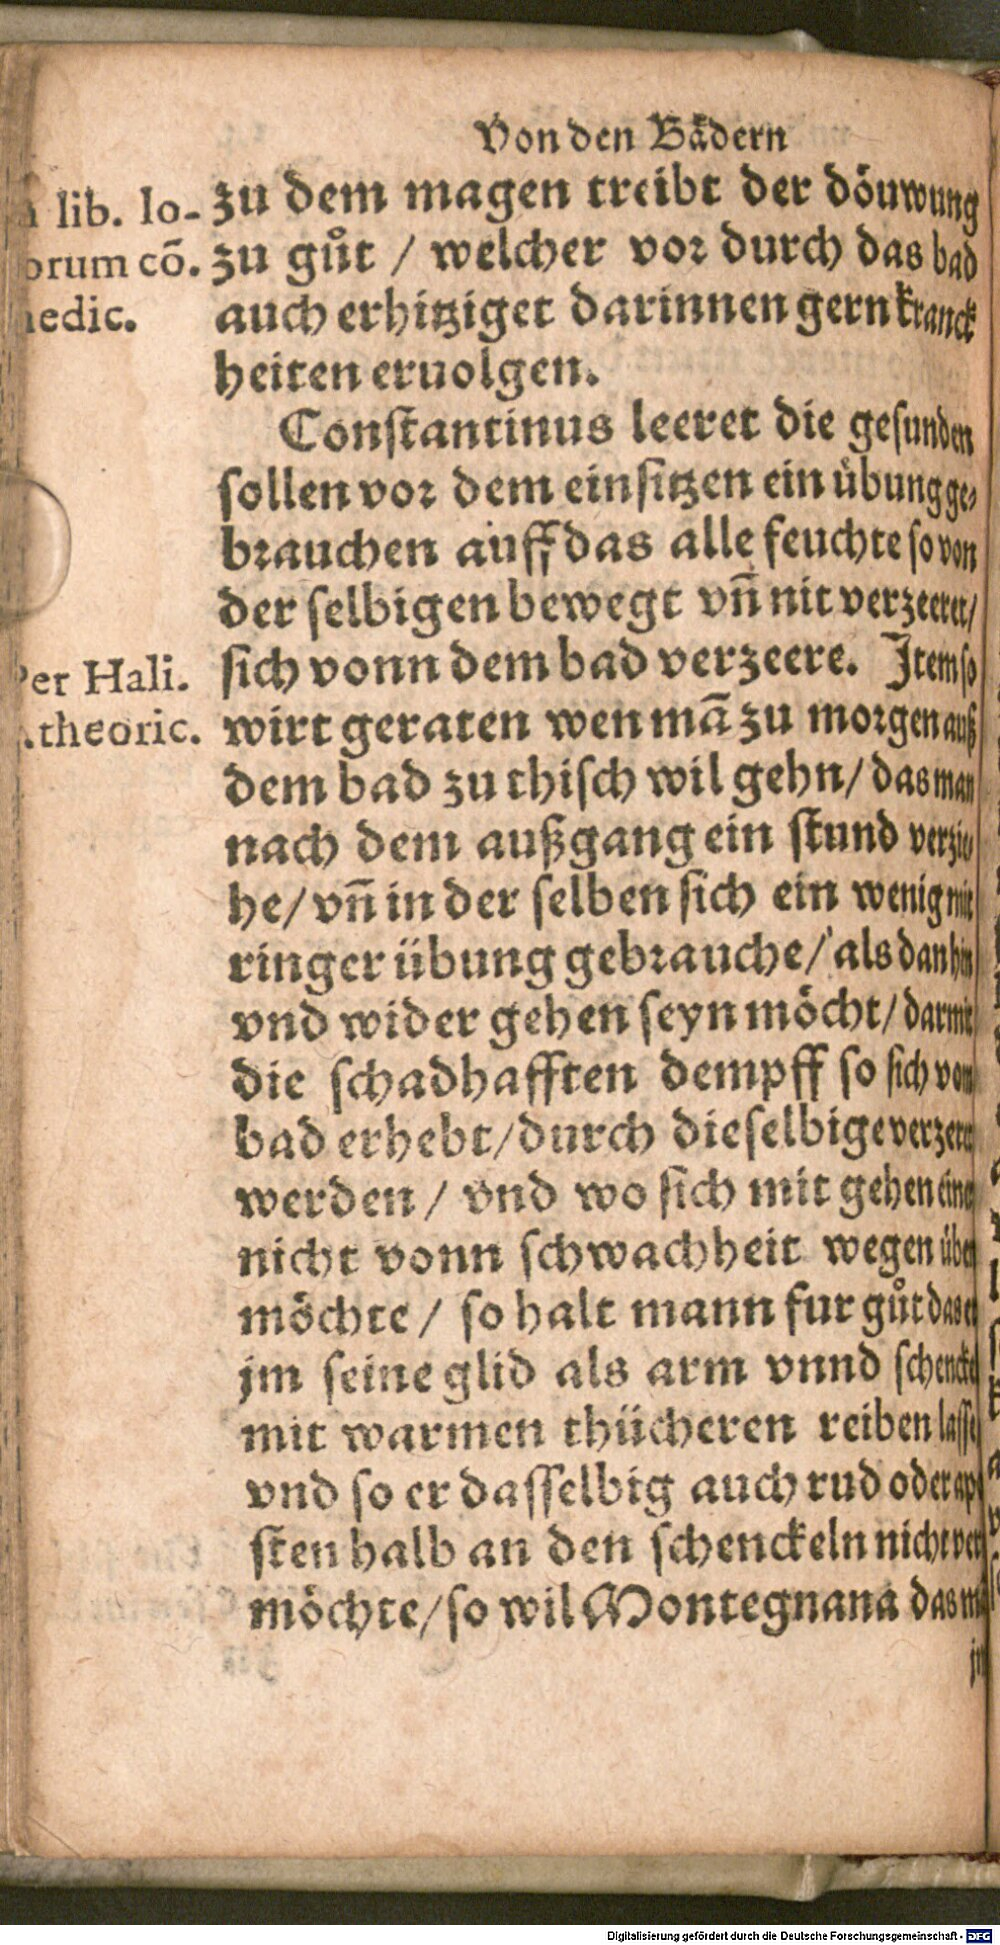 Von den Bådern
lib. lo-
orum cõ.
medic.
zu dem magen treibt der döuwung
zu gůt / welcher vor durch das bad
auch erhitziget darinnen gern kranck
heiten eruolgen.
Constantinus leeret die gesunden
sollen vor dem einsitzen ein übung ge-
brauchen auff das alle feuchte so von
der selbigen bewegt vñ nit verzeeret /
sich vonn dem bad verzeere. Item so
Per Hali.
theoric.
wirt geraten wen mã zu morgen auß
dem bad zu thisch wil gehn / das man
nach dem außgang ein stund verzie-
he / vñ in der selben sich ein wenig mit
ringer übung gebrauche / als dan hin
vnd wider gehen seyn möcht / darmit
die schadhafften dempff so sich von
bad erhebt / durch dieselbige verzeret
werden / vnd wo sich mit gehen einer
nicht vonn schwachheit wegen über
möchte / so halt mann fur gůt das er
jm seine glid als arm vnnd schenckel
mit warmen thücheren reiben lasse
vnd so er dasselbig auch rud oder
sten halb an den schenckeln nicht ver
möchte / so wil Montegnana das
Digitalisierung gefördert durch die Deutsche Forschungsgemeinschaft - DFG